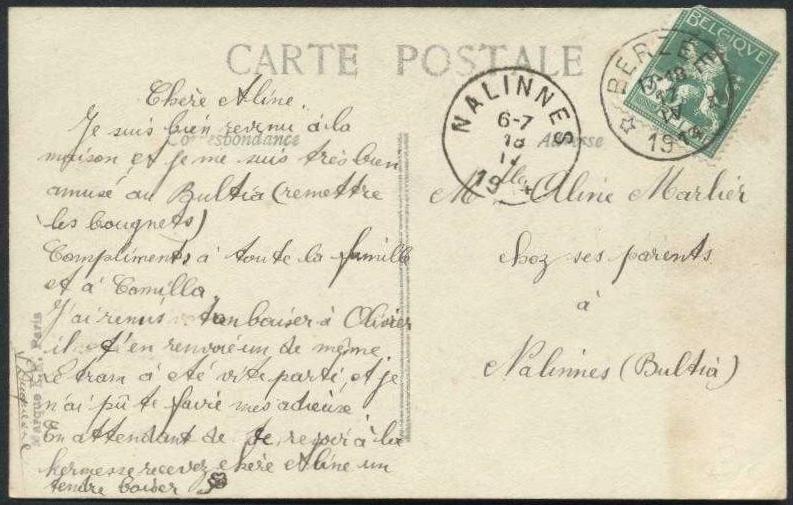 CARTE POSTALE
BELGIQUE
BERZEE
19
NALINNES
6-7
18
19
Correspondance
Adresse
Chère Aline.
Je suis bien revenu à la
maison, et je me suis très bien
amusé au Bultia (remettre
les bougnets)
Compliments à toute la famille
et à Camilla
J'ai remis ton baiser à Olivier
il t'en renvoie un de même
le tram à été vite parti, et je
n'ai pû te faire mes adieux
En attendant de te revoir à la
kermesse recevez chère Aline un
tendre baiser
Mlle Aline Marlier
chez ses parents
à
Nalinnes (Bultia)
Marque Paris